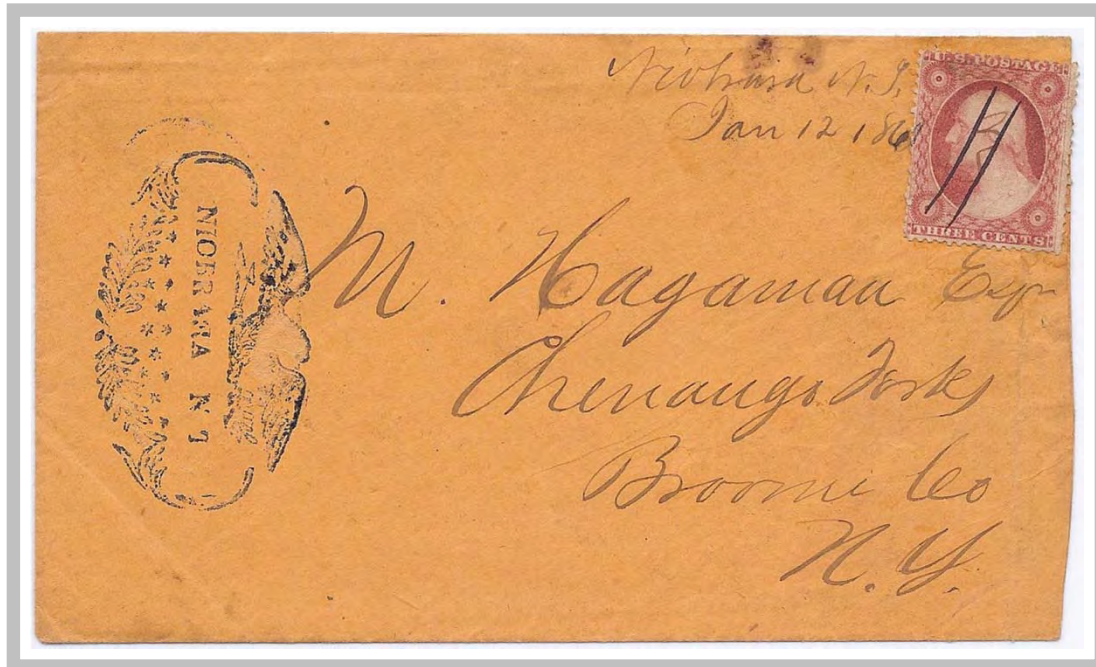 Niobrara N.T.
Jan 12 186
U.S. POSTAGE
THREE CENTS
NIOBRARA N T
M. Hagaman Esqr
Chenango Forks
Broome Co
N.Y.